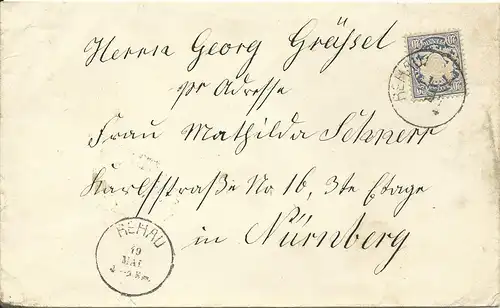 Herrn Georg Grässel
pr Adresse
Frau Mathilda Schnerr
Karlsstraße No 16, 3te Etage
in Nürnberg
REHAU
19
MAI
REHAU